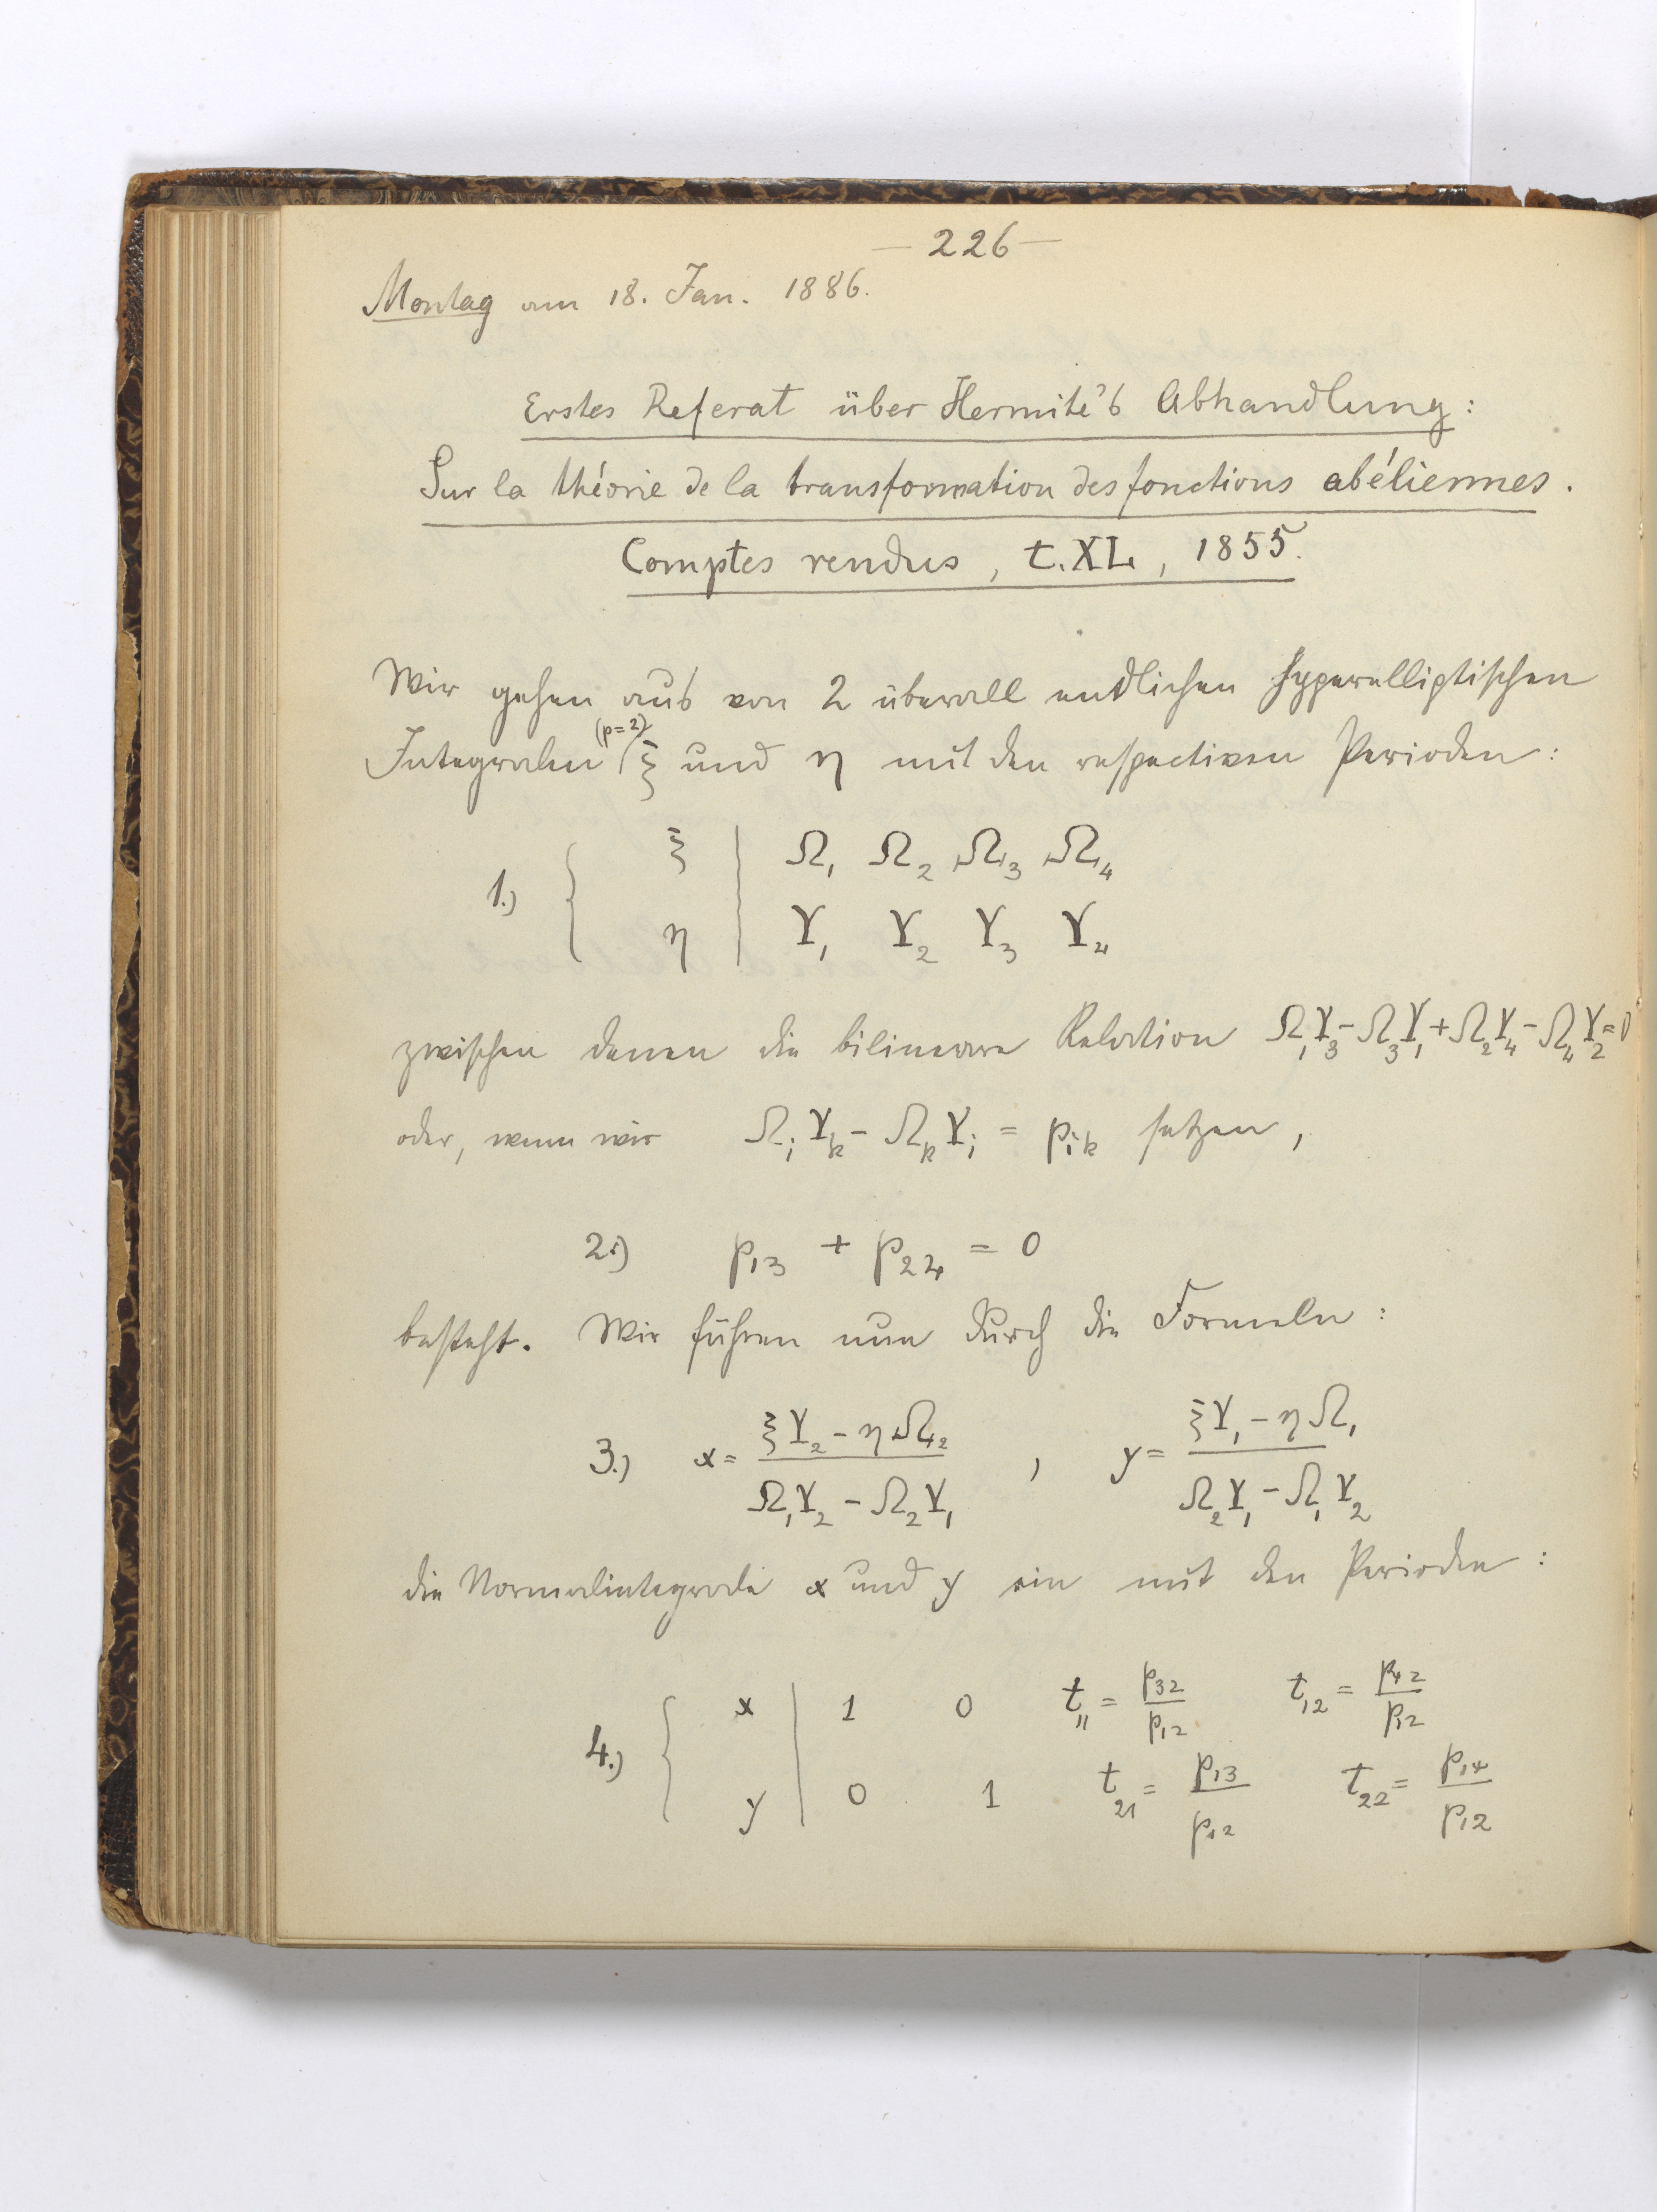 — 226 —
Montag am 18. Jan. 1886.
Erstes Referat über Hermite's Abhandlung:
Sur la théorie de la transformation des fonctions abéliennes.
Comptes rendus, t. XL, 1855.
Wir gehen aus von 2 überall endlichen hyperelliptischen
(p=2)
Integralen ξ und η mit den respectiven Perioden:
1.) { ξ | Ω₁ Ω₂ Ω₃ Ω₄
η | Υ₁ Υ₂ Υ₃ Υ₄
zwischen denen die bilineare Relation Ω₁Υ₃ - Ω₃Υ₁ + Ω₂Υ₄ - Ω₄Υ₂ = 0
oder, wenn wir Ωᵢ Υₖ - Ωₖ Υᵢ = pᵢₖ setzen,
2.) p₁₃ + p₂₄ = 0
besteht. Wir führen nun durch die Formeln:
3.) x = (ξΥ₂ - ηΩ₂) / (Ω₁Υ₂ - Ω₂Υ₁) , y = (ξΥ₁ - ηΩ₁) / (Ω₂Υ₁ - Ω₁Υ₂)
die Normalintegrale x und y ein mit den Perioden:
4.) { x | 1 0 t₁₁ = p₃₂/p₁₂ t₁₂ = p₄₂/p₁₂
y | 0 1 t₂₁ = p₁₃/p₁₂ t₂₂ = p₁₄/p₁₂